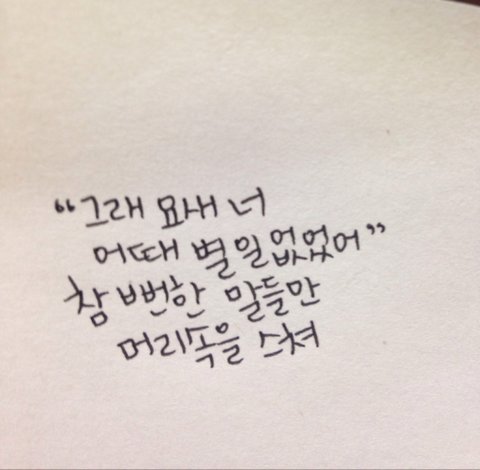 “그래 요새 너
어때 별일없었어”
참 뻔한 말들만
머리속을 스쳐